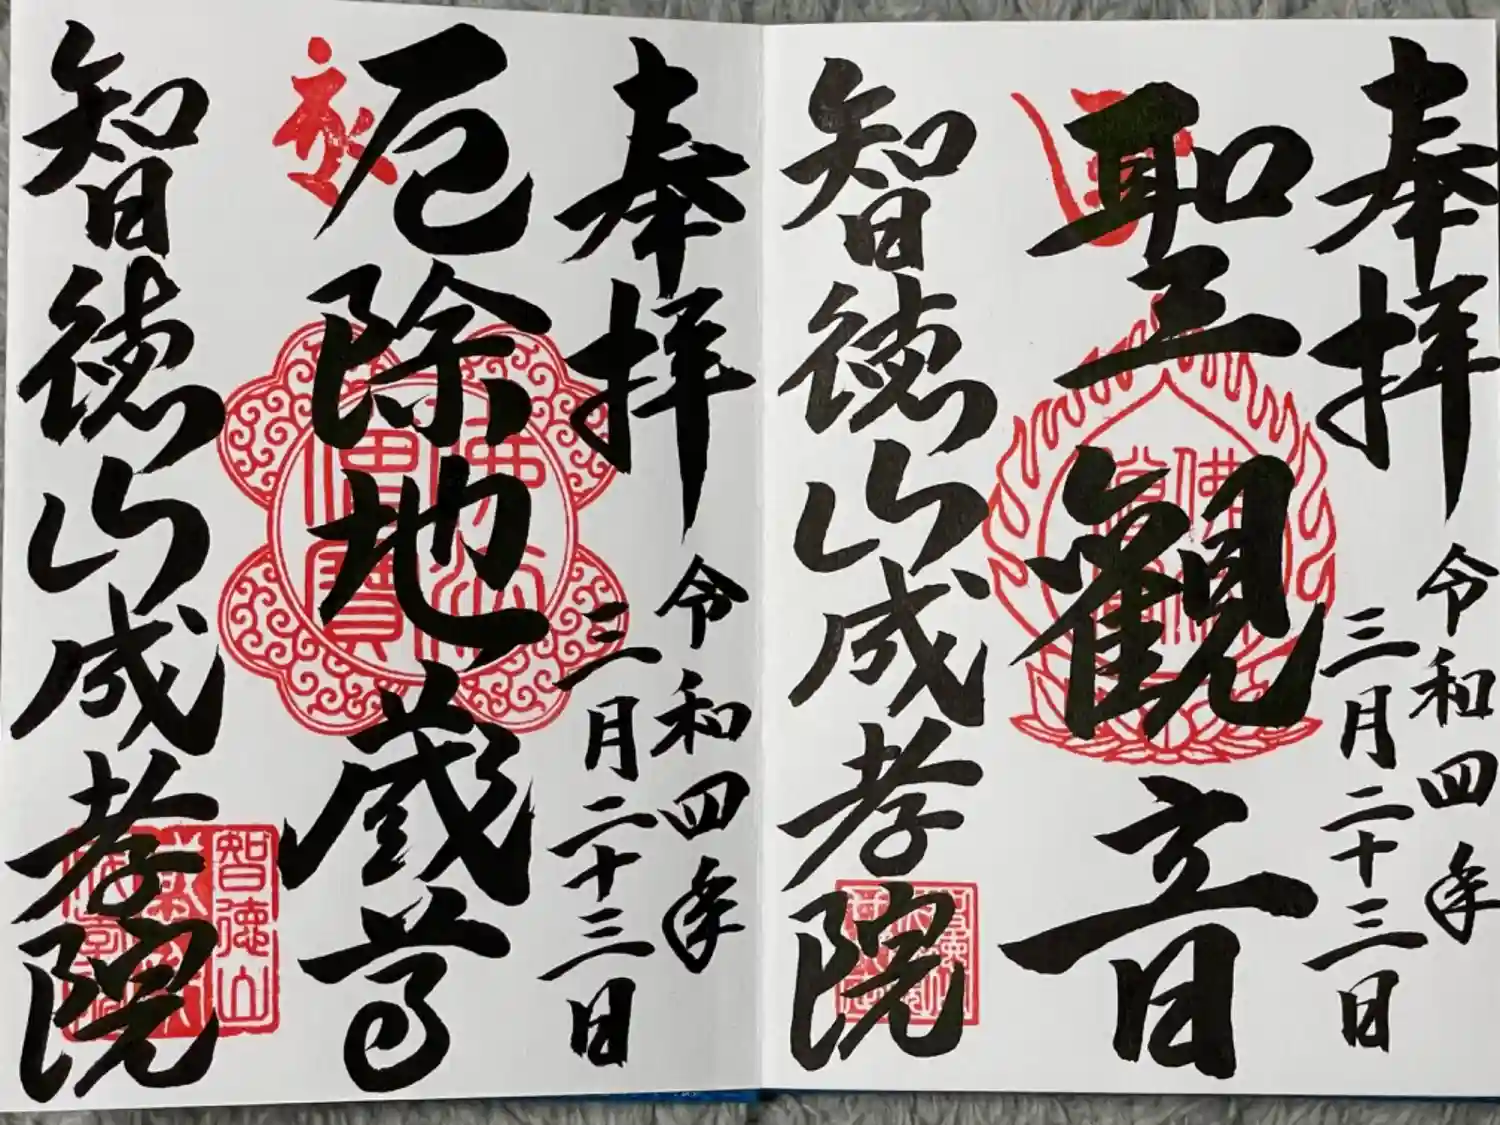 奉拝
令和四年
三月二十三日
聖観音
智徳山成孝院
奉拝
令和四年
三月二十三日
厄除地蔵尊
智徳山成孝院
佛法僧寶
智徳山